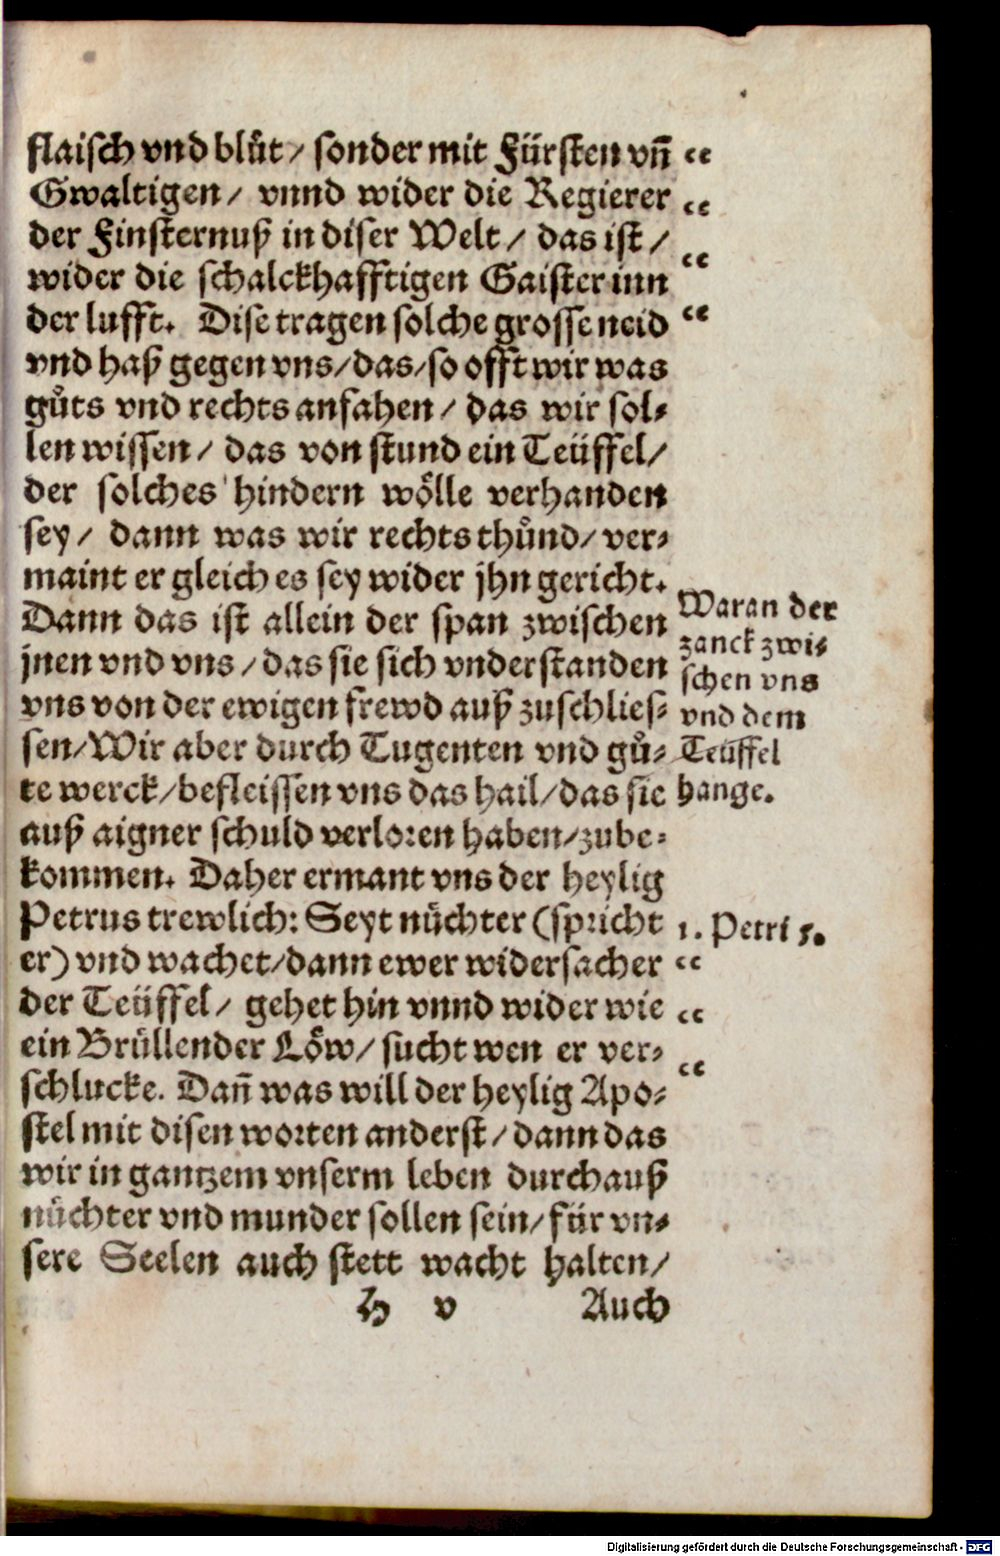 flaisch vnd blůt / sonder mit Fürsten vn̄ “
Gwaltigen / vnnd wider die Regierer “
der Finsternuß in diser Welt / das ist / “
wider die schalckhafftigen Gaister inn
der lufft. Dise tragen solche grosse neid “
vnd haß gegen vns / das / so offt wir was
gůts vnd rechts anfahen / das wir sol⸗
len wissen / das von stund ein Teüffel /
der solches hindern wölle verhanden
sey / dann was wir rechts thůnd / ver⸗
maint er gleich es sey wider jhn gericht.
Dann das ist allein der span zwischen
jnen vnd vns / das sie sich vnderstanden
vns von der ewigen frewd auß zuschlies⸗
sen / Wir aber durch Tugenten vnd gů⸗
te werck / befleissen vns das hail / das sie
auß aigner schuld verloren haben / zube⸗
kommen. Daher ermant vns der heylig
Petrus trewlich: Seyt nůchter (spricht
er) vnd wachet / dann ewer widersacher “
der Teüffel / gehet hin vnnd wider wie “
ein Brüllender Löw / sucht wen er ver⸗ “
schlucke. Dan̄ was will der heylig Apo⸗
stel mit disen worten anderst / dann das
wir in gantzem vnserm leben durchauß
nüchter vnd munder sollen sein / für vn⸗
sere Seelen auch stett wacht halten /
H v Auch
Waran der
zanck zwi⸗
schen vns
vnd dem
Teüffel
hange.
1. Petri 5.
Digitalisierung gefördert durch die Deutsche Forschungsgemeinschaft - DFG